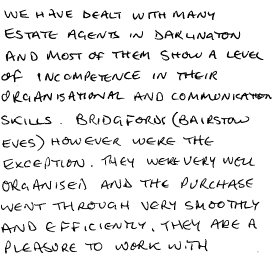 WE HAVE DEALT WITH MANY
ESTATE AGENTS IN DARLINGTON
AND MOST OF THEM SHOW A LEVEL
OF INCOMPETENCE IN THEIR
ORGANISATIONAL AND COMMUNICATION
SKILLS. BRIDGFORDS (BAIRSTOW
EVES) HOWEVER WERE THE
EXCEPTION. THEY WERE VERY WELL
ORGANISED AND THE PURCHASE
WENT THROUGH VERY SMOOTHLY
AND EFFICIENTLY. THEY ARE A
PLEASURE TO WORK WITH